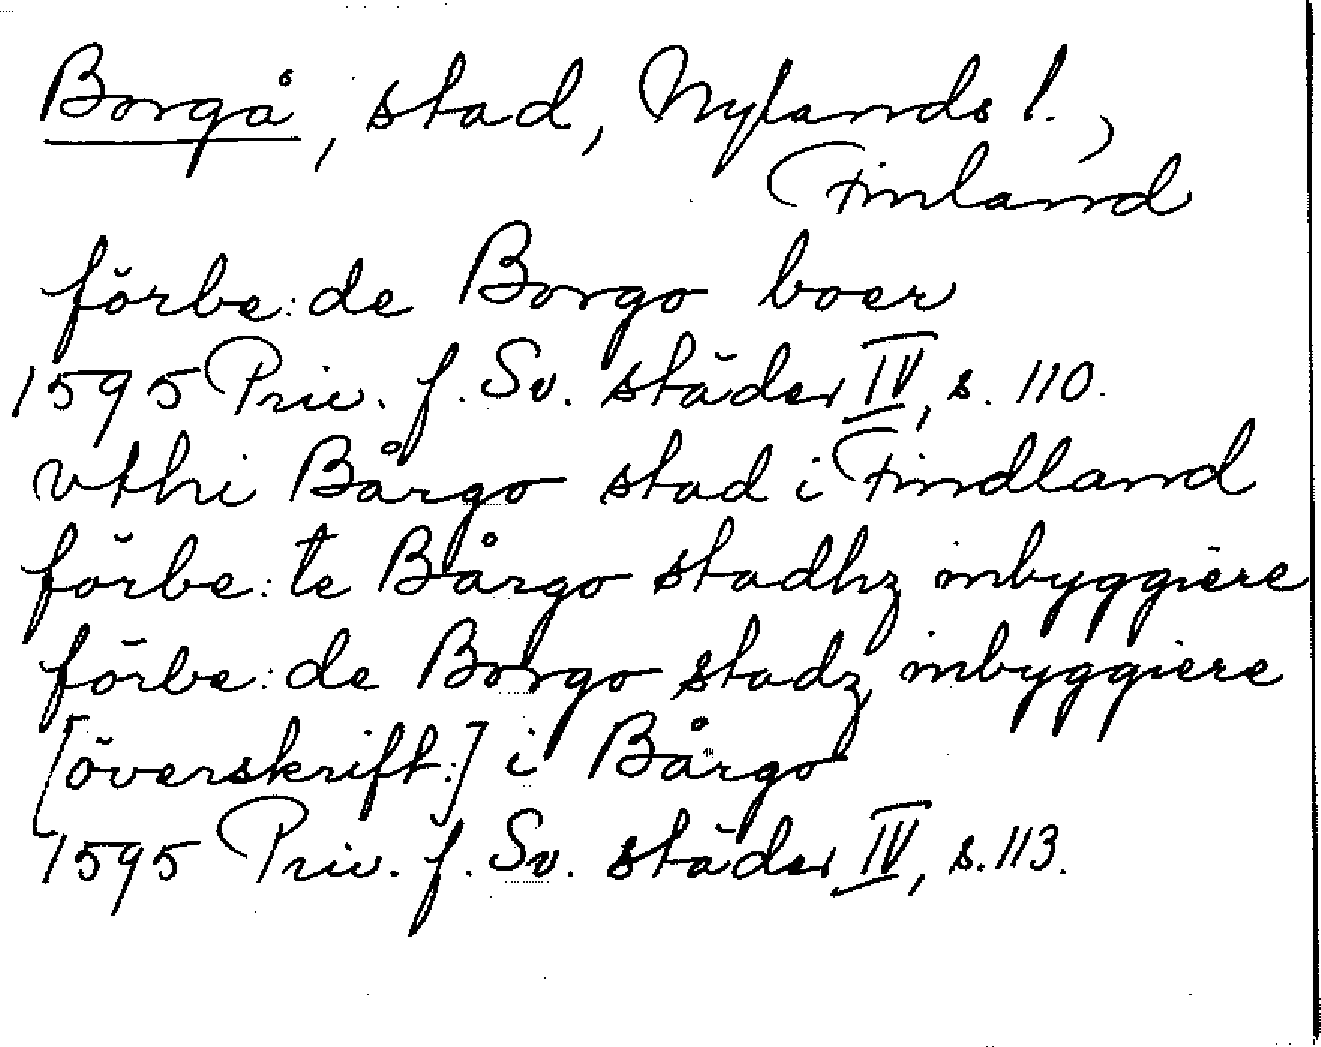 Borgå, stad, Nylands l.,
Finland
förbe: de Borgo boer
1595 Priv. f. Sv. städer IV, s. 110.
vthi Bårgo stad i Findland
förbe: te Bårgo stadhz inbyggiere
förbe: de Borgo stadz inbyggiere
[överskrift:] i Bårgo
1595 Priv. f. Sv. städer IV, s. 113.